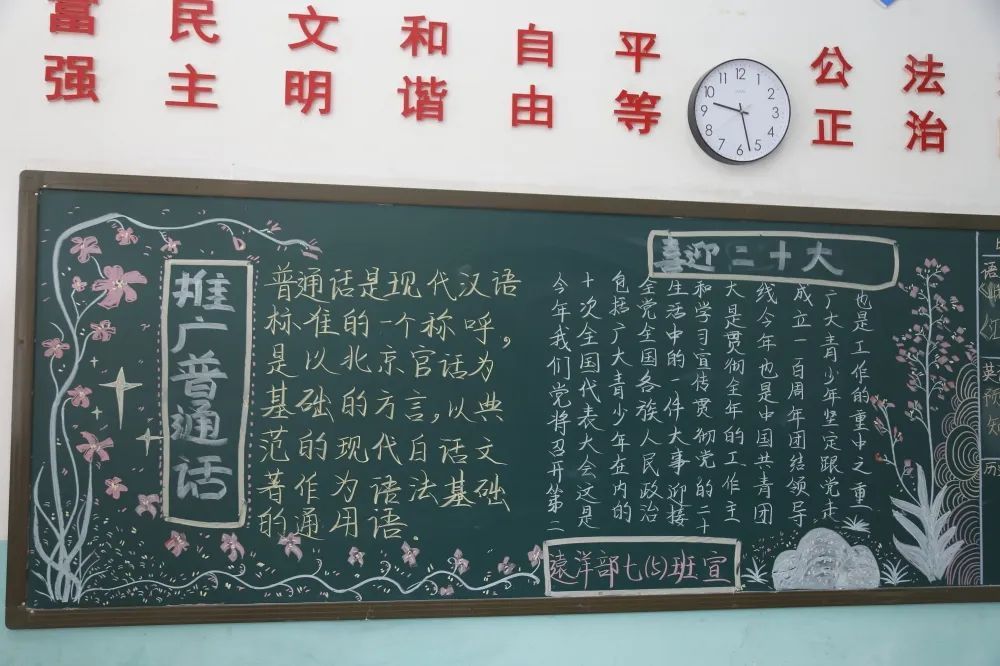 富强
民主
文明
和谐
自由
平等
公正
法治
12 1 2 3 4 5 6 7 8 9 10 11
推广普通话
普通话是现代汉语
标准的一个称呼，
是以北京官话为
基础的方言，以典
范的现代白话文
著作为语法基础
的通用语.
喜迎二十大
今年我们党将召开第二
十次全国代表大会这是
包括广大青少年在内的
全党全国各族人民政治
生活中的一件大事迎接
和学习宣传贯彻党的二十
大是贯彻全年的工作主
线今年也是中国共青团
成立一百周年团结领导
广大青少年坚定跟党走
也是工作的重中之重
远洋部七(5)班宣
语
英
历